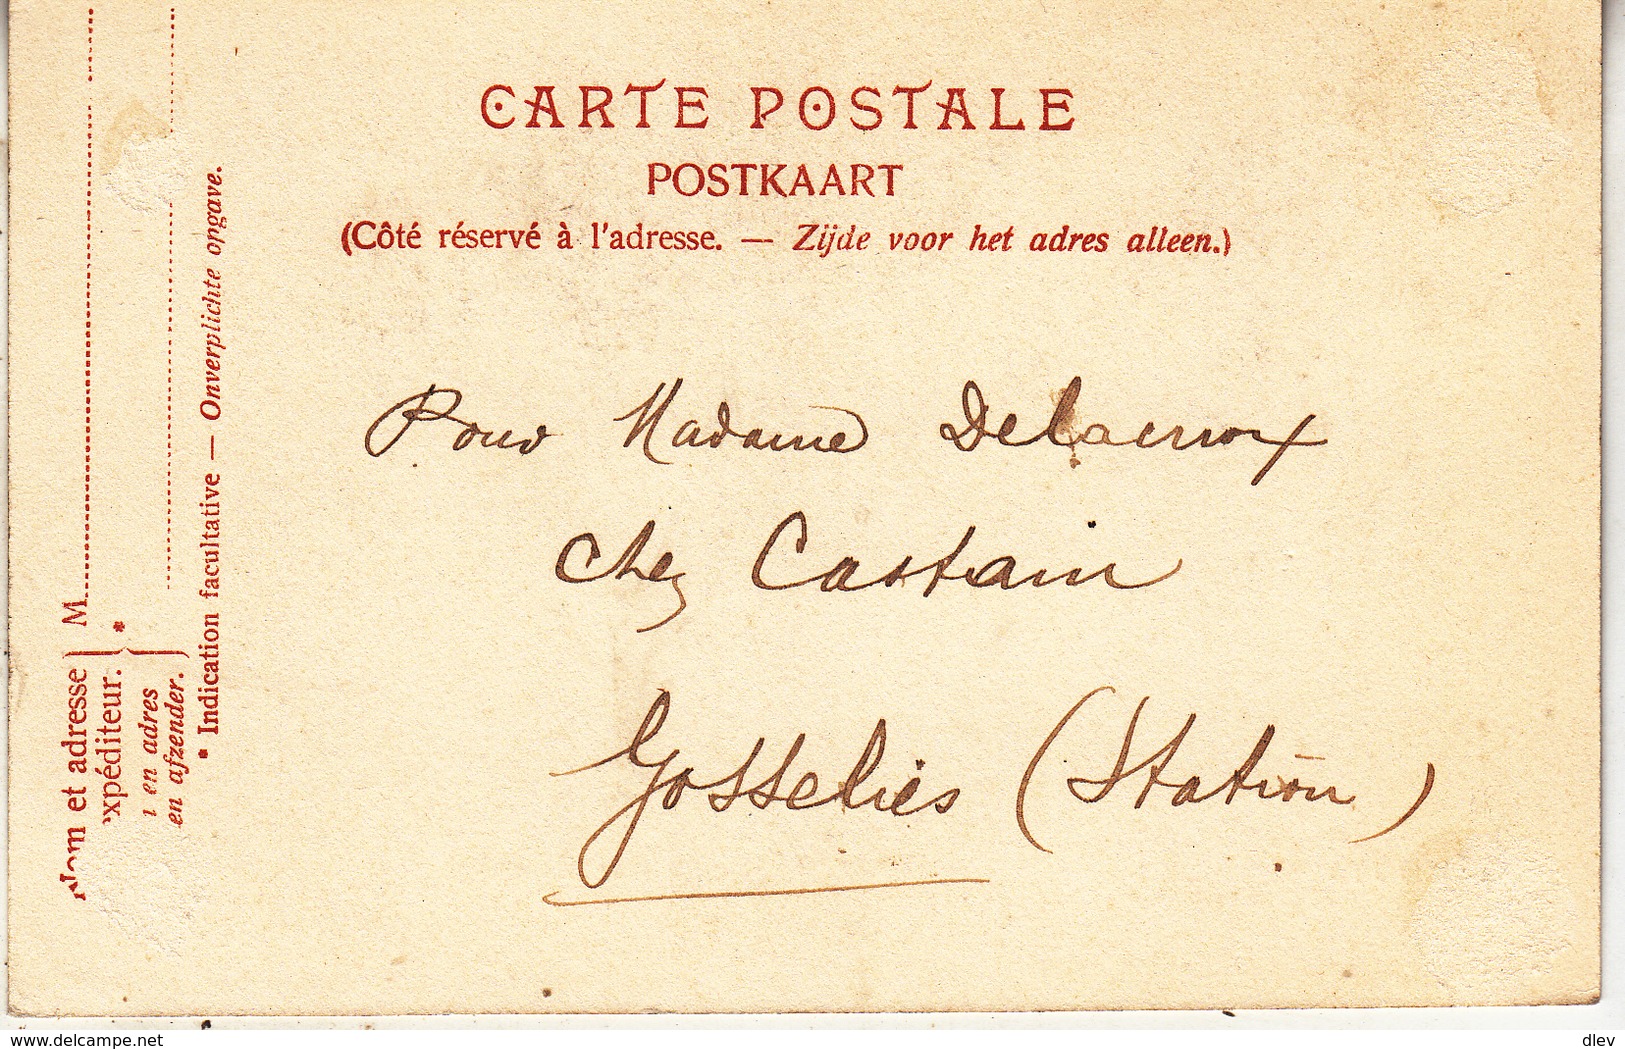 CARTE POSTALE
POSTKAART
(Côté réservé à l'adresse. — Zijde voor het adres alleen.)
Pour Madame Delacroix
chez Castain
Gosselies (Station)
Nom et adresse M
xpéditeur. *
en adres
en afzender.
* Indication facultative — Onverplichte opgave.
www.delcampe.net
dlev